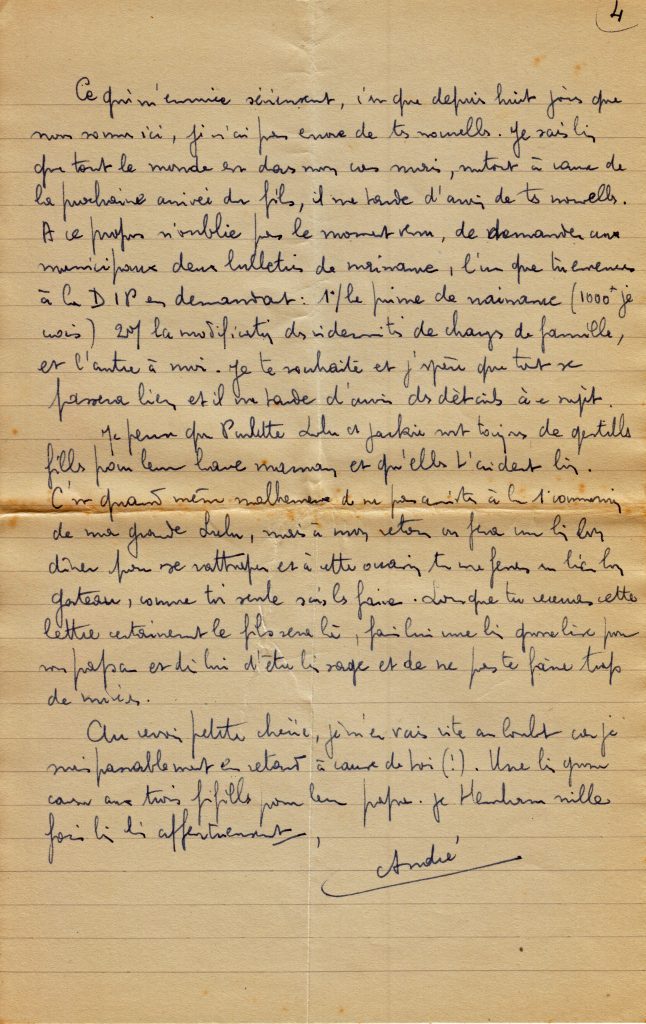 4
Ce qui m'ennuie sérieusement, c'est que depuis huit jours que
nous sommes ici, je n'ai pas encore de tes nouvelles. Je sais bien
que tout le monde est dans mon cas mais, surtout à cause de
la prochaine arrivée du fils, il me tarde d'avoir de tes nouvelles.
A ce propos n'oublie pas le moment venu, de demander aux
municipaux deux bulletins de naissance, l'un que tu enverras
à la D I P en demandant : 1°/ la prime de naissance (1000F je
crois) 2°/ la modification des indemnités de charges de famille,
et l'autre à moi. Je te souhaite et j'espère que tout se
passera bien et il me tarde d'avoir des détails à ce sujet.
Je pense que Paulette Lulu et Jackie sont toujours de gentilles
filles pour leur brave maman et qu'elles t'aident bien.
C'est quand même malheureux de ne pas assister à la 1° communion
de ma grande Lulu, mais à mon retour on fera un bien bon
dîner pour se rattraper et à cette occasion tu me feras un bien bon
gateau, comme toi seule sais les faire. Lorsque tu recevras cette
lettre certainement le fils sera là, fais lui une bien grosse bise pour
son papa et dis lui d'être bien sage et de ne pas te faire trop
de misères.
Au revoir petite chérie, je m'en vais vite au boulot car je
suis passablement en retard à cause de toi (!). Une bien grosse
caresse aux trois fifilles pour leur papa. Je t'embrasse mille
fois bien bien affectueusement,
André